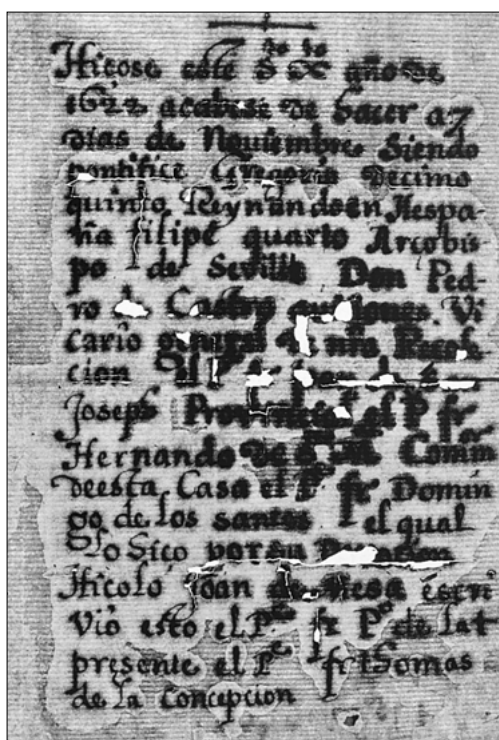 Hicose este S.to X.to año de
1622 acabose de hacer a 7
dias de Nouiembre Siendo
pontifice Gregorio Decimo
quinto Reynando en Hespa
ña filipe quarto Arcobis
po de Sevilla Don Ped
ro de Castro quiñones. Vi
cario general de nra
cion el P. fr
Joseph Provincial el P fr
Hernando de S. Comm
deesta Casa el P.e fr Domin
go de los santos el qual
lo hico por su
Hicolo Joan de Mesa escri
vio esto el P. fr P.o de la t
presente el P.e fr thomas
de la concepcion